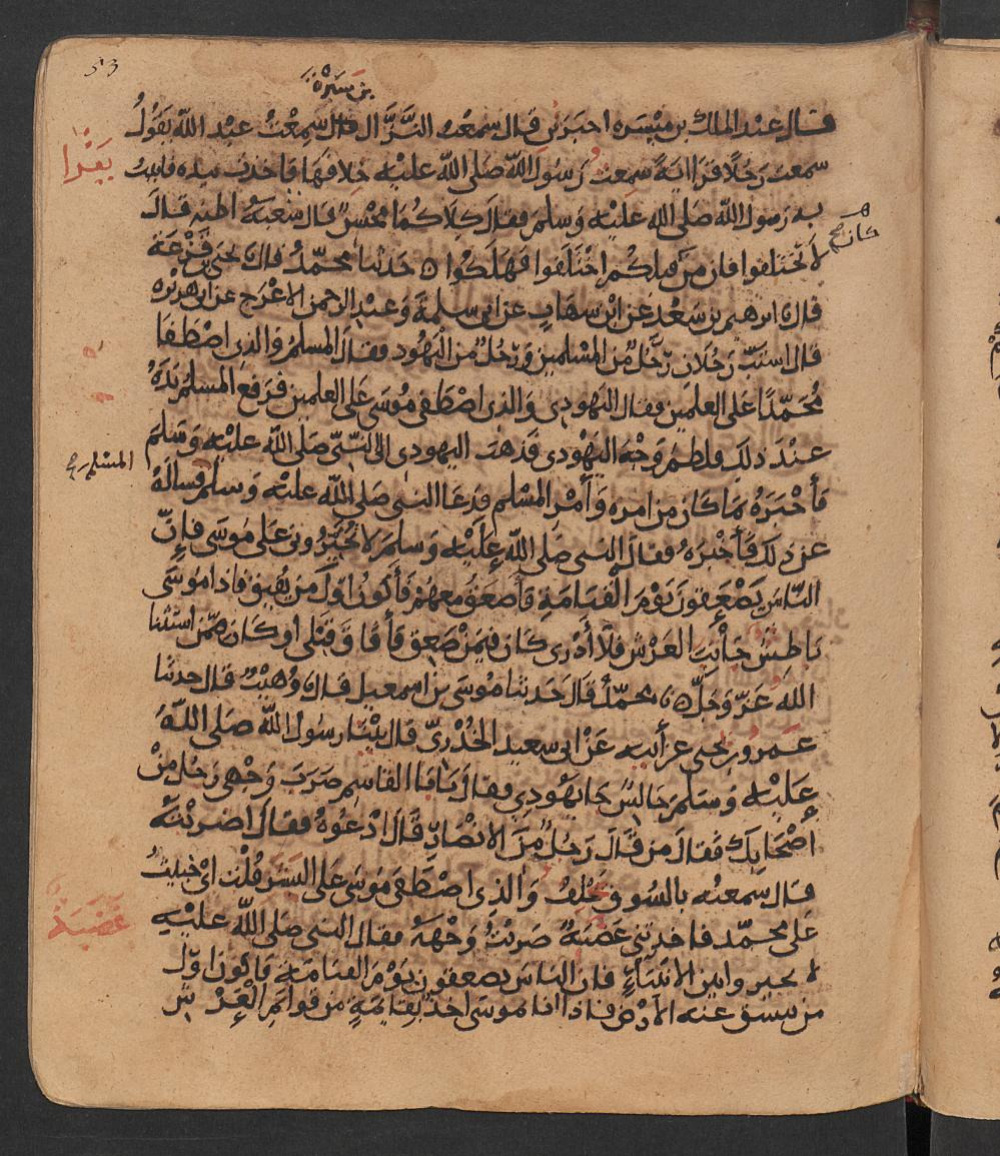 53
بن سبرة
قال عبد الملك بن ميسره اخبرني قال سمعت النزال قال سمعت عبد الله يقول
يقرا
سمعت رجلا قرا اية سمعت رسول الله صلى الله عليه خلافها فاخذت بيده فاتيت
به رسول الله صلى الله عليه وسلم فقال كلاكما محسن قال شعبة اظنه قال
كان صح
لا تختلفوا فان من قبلكم اختلفوا فهلكوا ه حدثنا محمد قال يحيى بن قزعة
قال ابرهيم بن سعد عن ابن شهاب عن ابي سلمة وعبد الرحمن الاعرج عن ابي هريره
قال استب رجلان رجل من المسلمين ورجل من اليهود فقال المسلم والذي اصطفا
محمدا على العلمين فقال اليهودي والذي اصطفى موسى على العلمين فرفع المسلم يده
عند ذلك فلطم وجه اليهودي فذهب اليهودي الى النبي صلى الله عليه وسلم
المسلم صح
فأخبره بما كان من امره وأمر المسلم فدعا النبي صلى الله عليه وسلم فساله
عن ذلك فأخبره فقال النبي صلى الله عليه وسلم لا تخيروني على موسى فإن
الناس يصعقون يوم القيامة فأصعق معهم فأكون اول من يفيق فاذا موسى
باطش جانب العرش فلا أدري كان فيمن صعق فأفاق قبلي او كان ممن استثنا
الله عز وجل ه محمد قال حدثنا موسى بن اسمعيل قال وهيب قال حدثنا
عمرو بن يحيى عن أبيه عن ابي سعيد الخدري قال بينا رسول الله صلى الله
عليه وسلم جالس جا يهودي فقال يا با القاسم ضرب وجهي رجل من
أصحابك فقال من قال رجل من الانصار قال ادعوه فقال اضربته
قال سمعته بالسوق يحلف والذي اصطفى موسى على البشر قلت اي خبيث
على محمد فاخذتني غضبة ضربت وجهه فقال النبي صلى الله عليه
غضبة
لا تخيروا بين الانبياء فان الناس يصعقون يوم القيامة فاكون اول
من تنشق عنه الارض فاذا انا موسى اخذ بقايمة من قوائم العرش